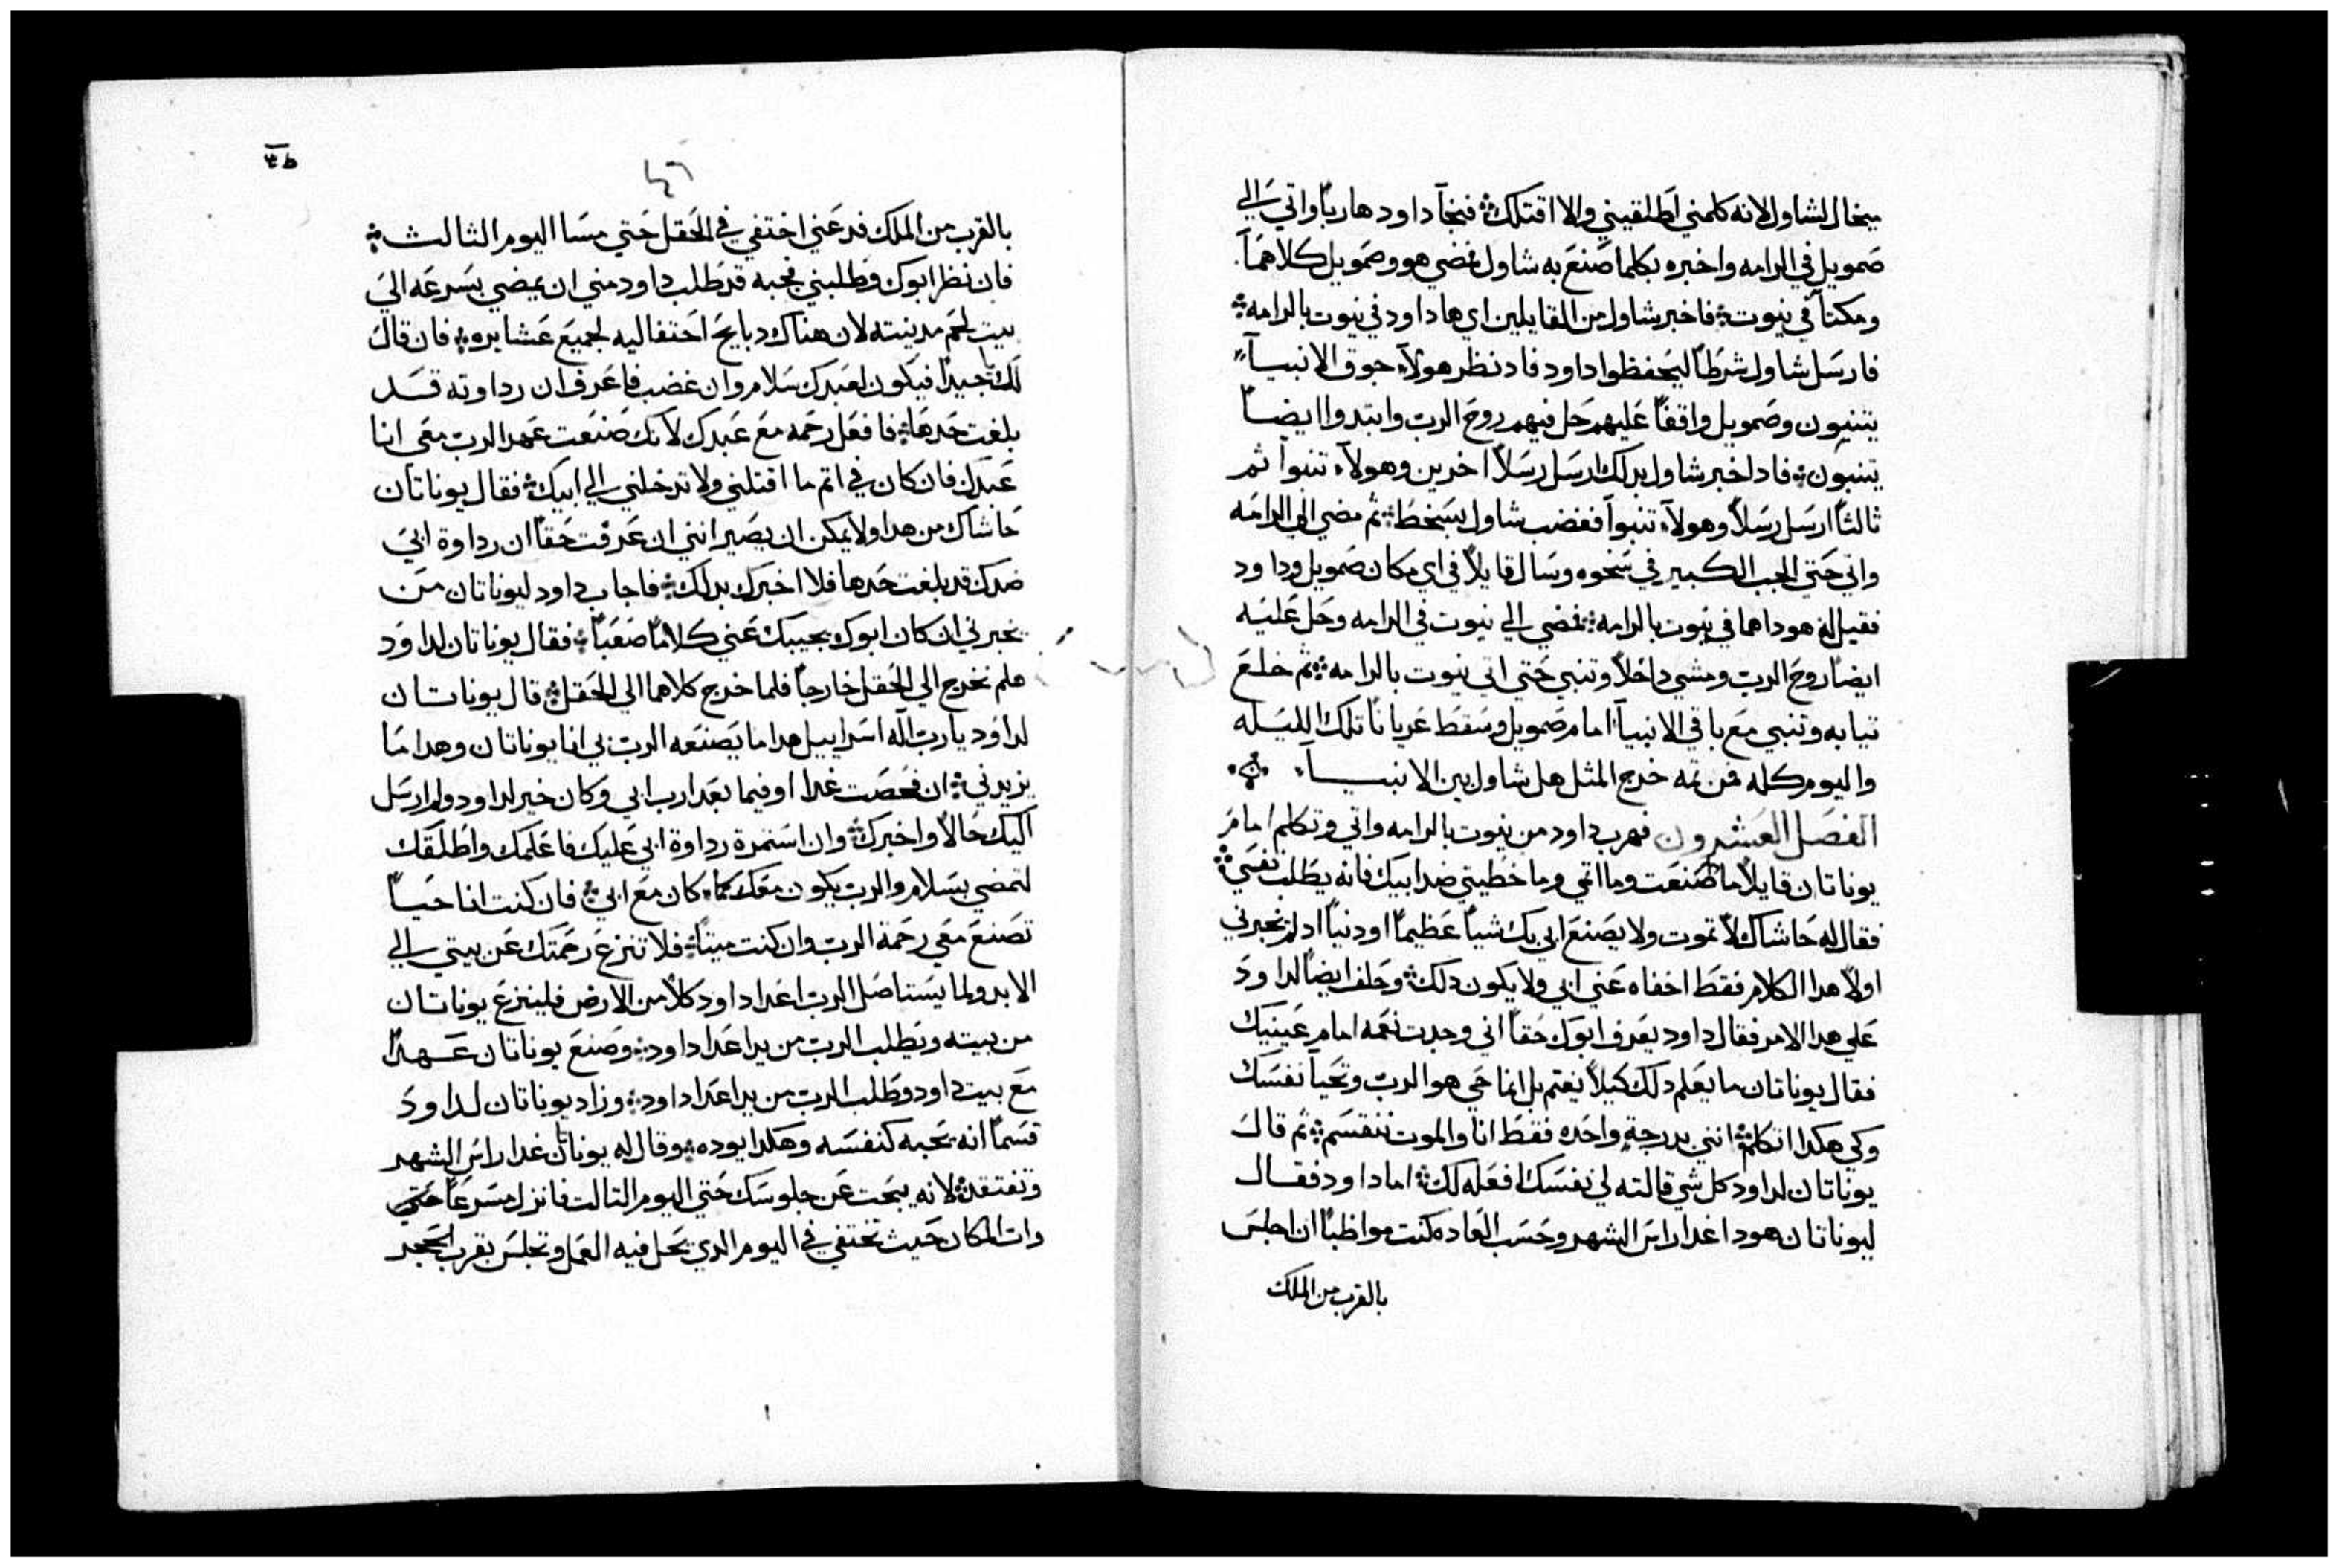 ميخال لشاول لانه كلمني اطلقيني والا اقتلك فنجآ داود هارباً واتي الي
صمويل في الرامه واخبره بكلما صنع به شاول فمضي هو وصمويل كلاهما
ومكتآ في نيوت فاخبر شاول من القايلين اي ها داود في نيوت بالرامه
فارسل شاول شرطاً ليحفظوا داود فاد نظر هولآء جوق الانبيآ
يتنبيون وصمويل واقفاً عليهم حل فيهم روح الرب وابتدوا ايضاً
يتنبون فاد اخبر شاول بدلك ارسل رسلاً اخرين وهولآء تنبوا ثم
ثالثاً ارسل رسلاً وهولآء تنبوآ فغضب شاول بسخط ثم مضي الي الرامه
واتي حتي الجب الكبير في سخوه وسال قايلاً في اي مكان صمويل وداود
فقيل له هودا هما في نيوت بالرامه فمضي الي نيوت في الرامه وحل عليه
ايضاً روح الرب ومشي داخلاً وتنبي حتي اتي نيوت بالرامه ثم خلع
تيابه وتنبي مع باقي الانبيآ امام صمويل وسقط عرياناً تلك الليله
واليوم كله فمن تمه خرج المثل هل شاول بين الانبيــآ
الفصل العشرون فهرب داود من نيوت بالرامه واتي وتكلم امام
يوناتان قايلاً ما صنعت وما اتمي وما خطيتي ضد ابيك فانه يطلب نفسي
فقال له حاشاك لا تموت ولا يصنع ابي بك شياً عظيماً او دنياً اد لم يخبرني
اولاً هدا الكلام فقط اخفاه عني ابي ولا يكون دلك وحلف ايضاً لداود
علي هدا الامر فقال داود يعرف ابوك حقاً اني وجدت نعمه امام عينيك
فقال يوناتان ما يعلم دلك كيلا يغتم بل انما حي هو الرب وتحيا نفسك
وكي هكدا اتكلم انني بدرجةٍ واحده فقط انا والموت ننقسم ثم قال
يوناتان لداود كل شي قالته لي نفسك افعله لك اما داود فقال
ليوناتان هودا غدا راس الشهر وحسب العاده كنت مواظباً ان اجلس
بالقرب من الملك
بالقرب من الملك فدعني اختفي في الحقل حتي مسا اليوم الثالث
فان نظر ابوك وطلبني فجبه قد طلب داود مني ان يمضي بسرعه الي
بيت لحم مدينته لان هناك دبايح احتفاليه لجميع عشايره فان قال
لك جيداً فيكون لعبدك سلام وان غضب فاعرف ان رداوته قد
بلغت حدها فافعل رحمه مع عبدك لانك صنعت عهد الرب معي انا
عبدك فان كان في اتم ما اقتلني ولا تدخلني الي ابيك فقال يوناتان
حاشاك من هدا ولا يمكن ان يصير انني ان عرفت حقاً ان رداوة ابي
ضدك قد بلغت حدها فلا اخبرك بدلك فاجاب داود ليوناتان من
يخبرني ان كان ابوك يجيبك عني كلاماً صعباً فقال يوناتان لداود
هلم نخرج الي الحقل خارجاً فلما خرج كلاهما الي الحقل قال يوناتان
لداود يا رب اله اسراييل هدا ما يصنعه الرب بي انا يوناتان وهدا ما
يزيدني ان فحصت غدا او فيما بعد ارب ابي وكان خير لداود ولم ارسل
اليك حالاً واخبرك وان استمرة رداوة ابي عليك فاعلمك واطلقك
لتمضي بسلام والرب يكون معك كما كان مع ابي فان كنت انا حياً
تصنع معي رحمة الرب وان كنت ميتاً فلا تنزع رحمتك عن بيتي الي
الابد ولما يستاصل الرب اعدا داود كلاً من الارض فلينزع يوناتان
من بيته ويطلب الرب من يد اعدا داود وصنع يوناتان عهداً
مع بيت داود وطلب الرب من يد اعدا داود وزاد يوناتان لداود
قسماً انه يحبه كنفسه وهكدا يوده وقال له يوناتان غدا راس الشهر
وتفتقد لانه يبحت عن جلوسك حتي اليوم التالت فانزل مسرعاً حتي
دات المكان حيث تختفي في اليوم الدي يحل فيه العمل وتجلس بقرب الحجر